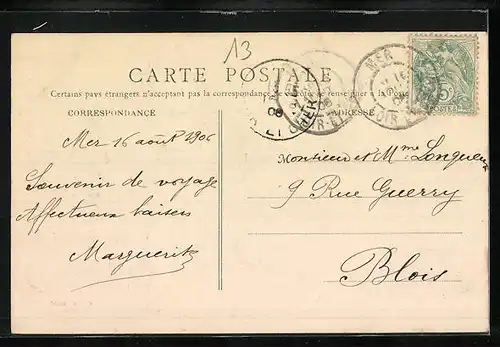 13
CARTE POSTALE
Certains pays étrangers n'acceptant pas la correspondance se renseigner à la Poste
CORRESPONDANCE
ADRESSE
MER
LOIR-ET-CHER
POSTES
Mer 16 août 1906
Souvenir de voyage
Affectueux baisers
Marguerite
Monsieur et Mme
9 Rue Guerry
Blois